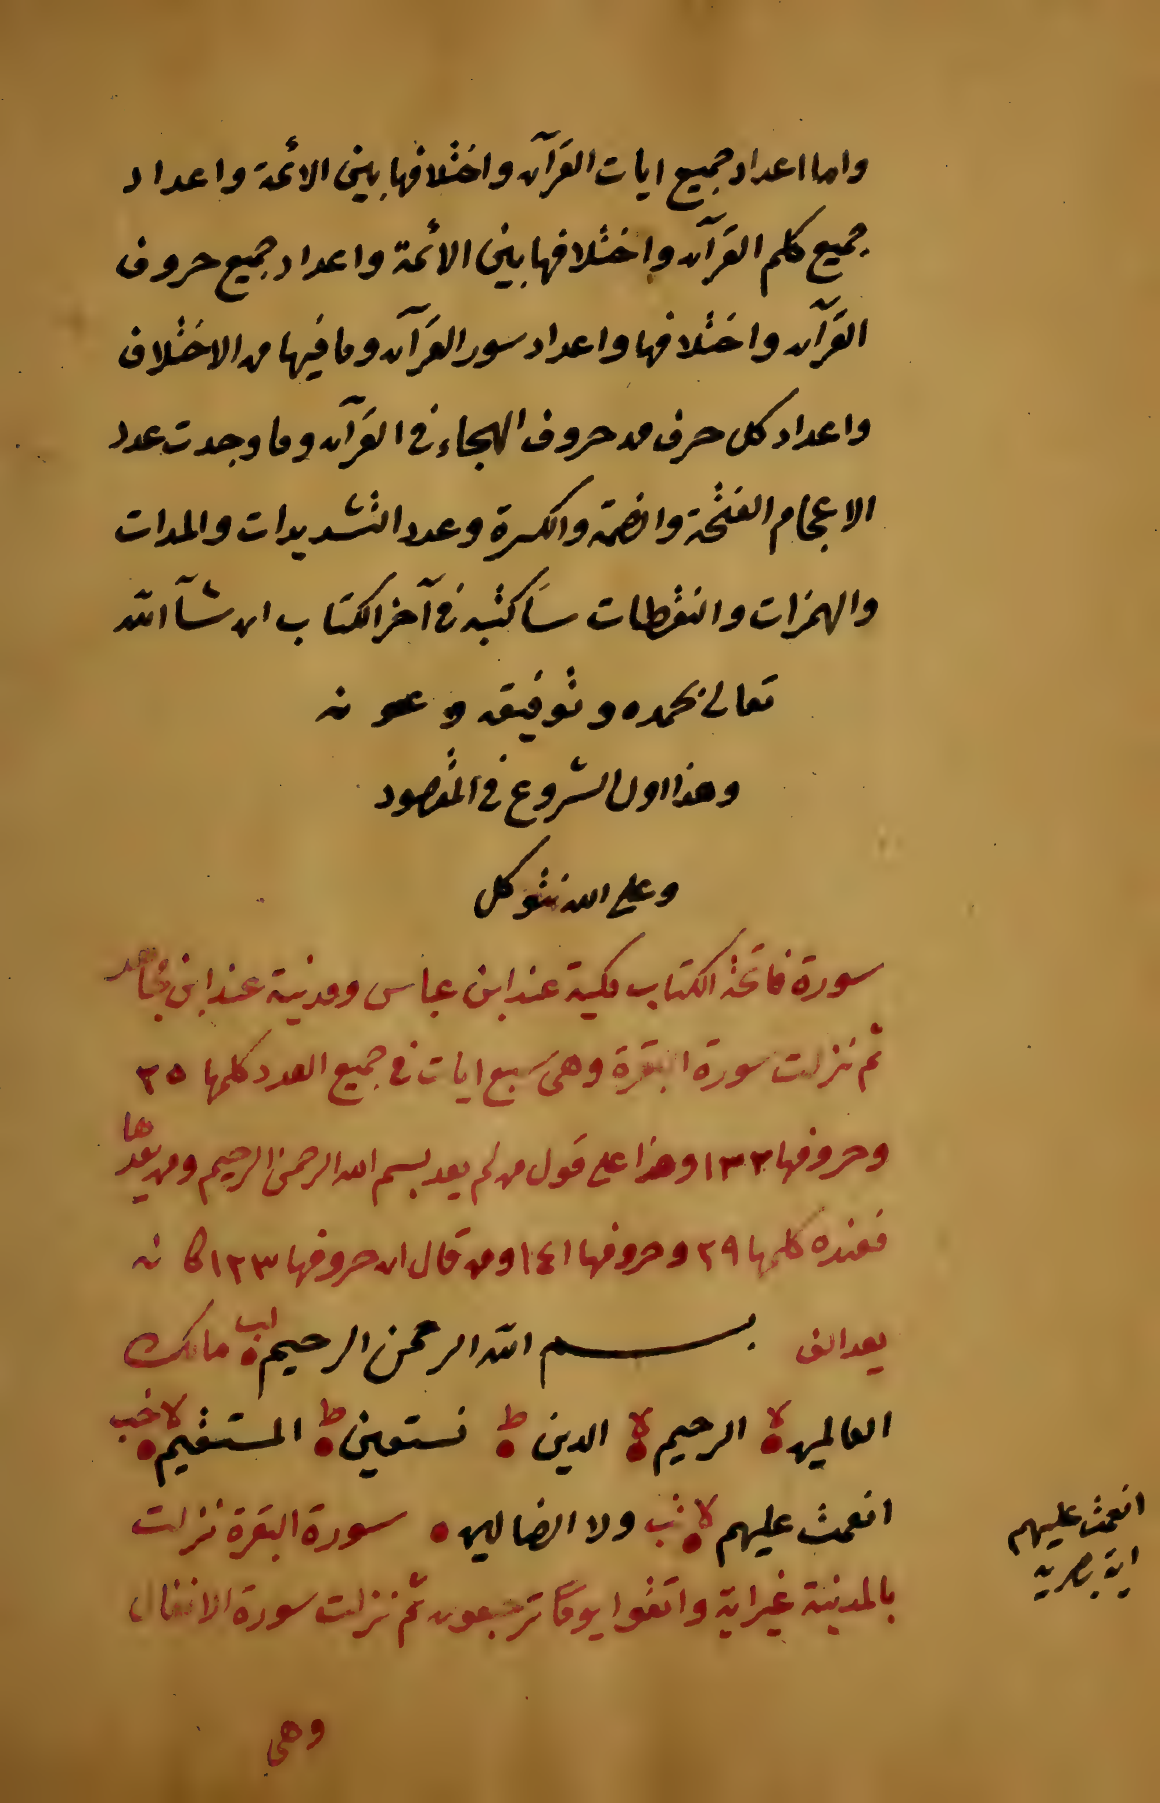 واما اعداد جميع ايات القرآن واختلافها بين الائمة واعداد
جميع كلم القرآن واختلافها بين الائمة واعداد جميع حروف
القرآن واختلافها واعداد سور القرآن وما فيها من الاختلاف
واعداد كل حرف من حروف الهجاء في القرآن وما وجدت عدد
الاعجام الفتحة والضمة والكسرة وعدد التشديدات والمدات
والهمزات والنقطات سأكتبه في آخر الكتاب ان شآ الله
تعالى بحمده وتوفيقه وعونه
وهذا اول الشروع في المقصود
وعلى الله نتوكل
سورة فاتحة الكتاب مكية عند ابن عباس ومدنية عند ابن مجاهد
ثم نزلت سورة البقرة وهي سبع ايات في جميع العدد كلمها ٢٥
وحروفها ١٣٢ وهذا على قول من لم يعد بسم الله الرحمن الرحيم ومن يعدها
فعنده كلمها ٢٩ وحروفها ١٤١ ومن قال ان حروفها ١٢٣ كانه
يعد الف بسم الله الرحمن الرحيم اب مالك
العالمين لا الرحيم لا الدين ط نستعين ط المستقيم لا خب
انعمت عليهم لا تب ولا الضالين سورة البقرة نزلت
بالمدينة غير اية واتقوا يوما ترجعون ثم نزلت سورة الانفال
وهي
انعمت عليهم
اية بصرية